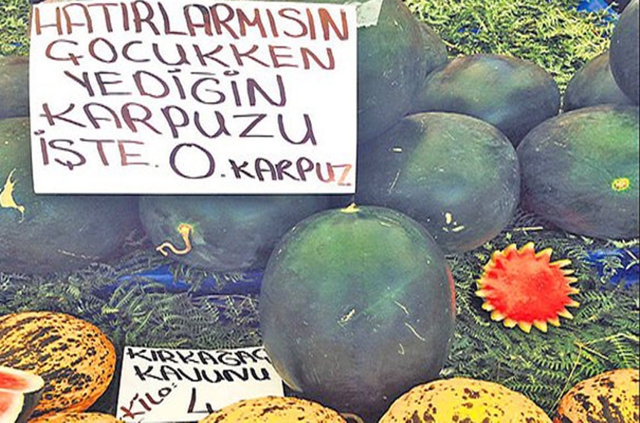 HATIRLARMISIN
ÇOCUKKEN
YEDİĞİN
KARPUZU
İŞTE. O. KARPUZ
KIRKAĞAÇ
KAVUNU
KİLO: 4